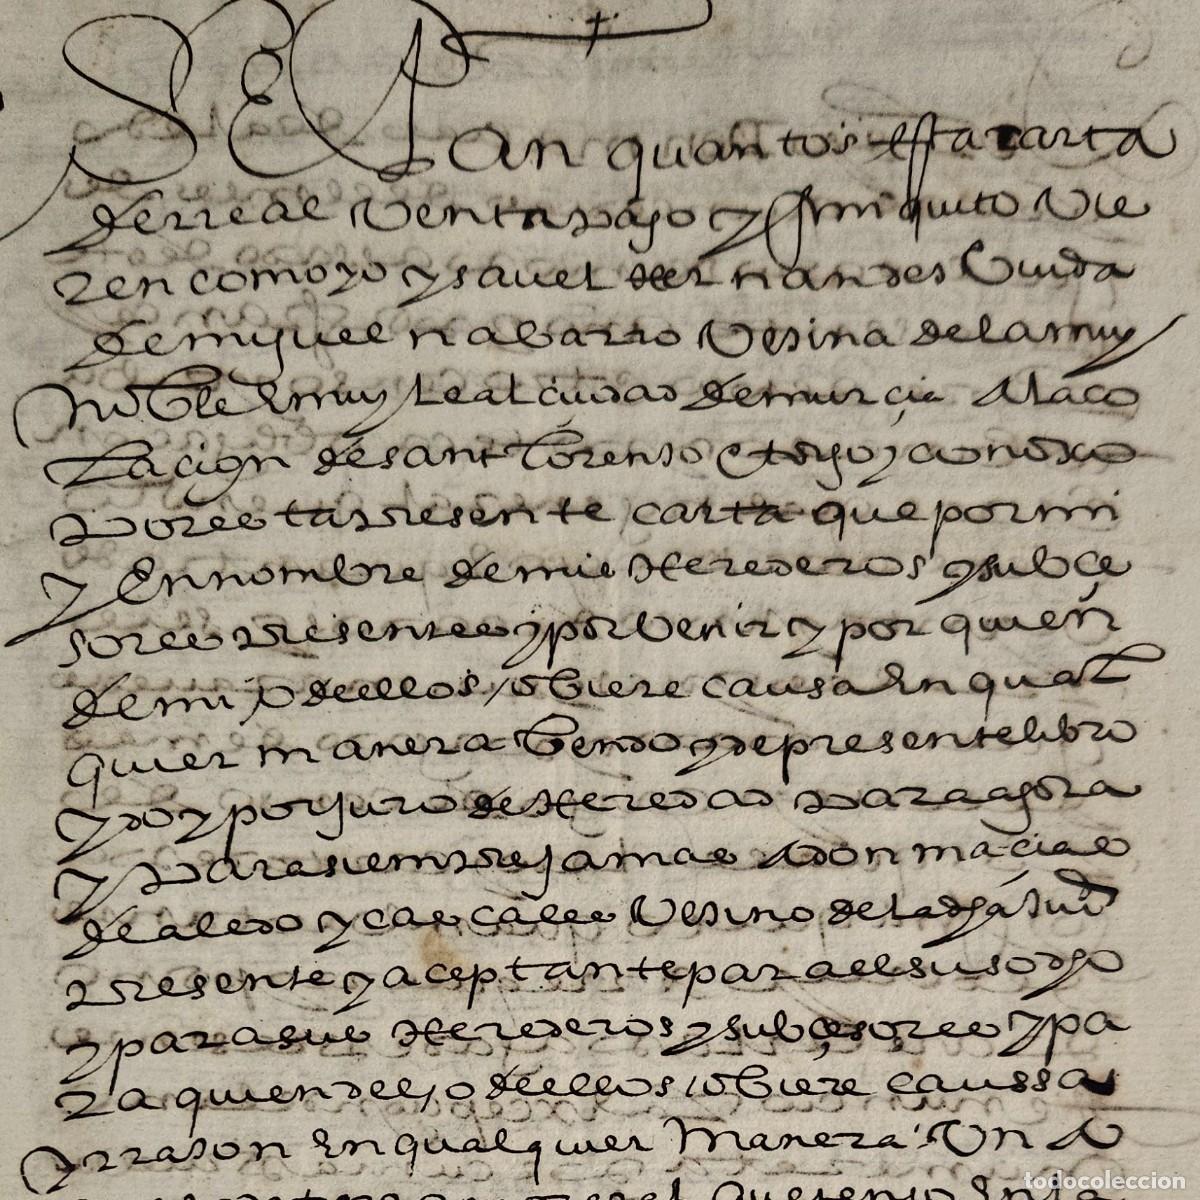 SEPan quantos esta carta
de rreal Venta pago y finiquito Vie
ren como yo ysauel Hernandes biuda
de miguel nabarro Vesina de la muy
noble E muy leal ciudad de murcia A la co
lacion de sant lorenso otorgo y conosco
por esta presente carta que por mi
y En nombre de mis Herederos y subçe
sores presentes y por Venir y por quien
de mi y o dellos obiere causa En qual
quier manera bendo y de presente libro
y doy por juro de Heredad para agora
y para siempre jamas A don macias
de aledo y cascales Vesino de la dha çiud
presente y aceptante para el susodho
y para sus Herederos y subçesores y pa
ra quien del y o dellos obiere caussa
y rrason En qual quier Manera Un p
todocoleccion